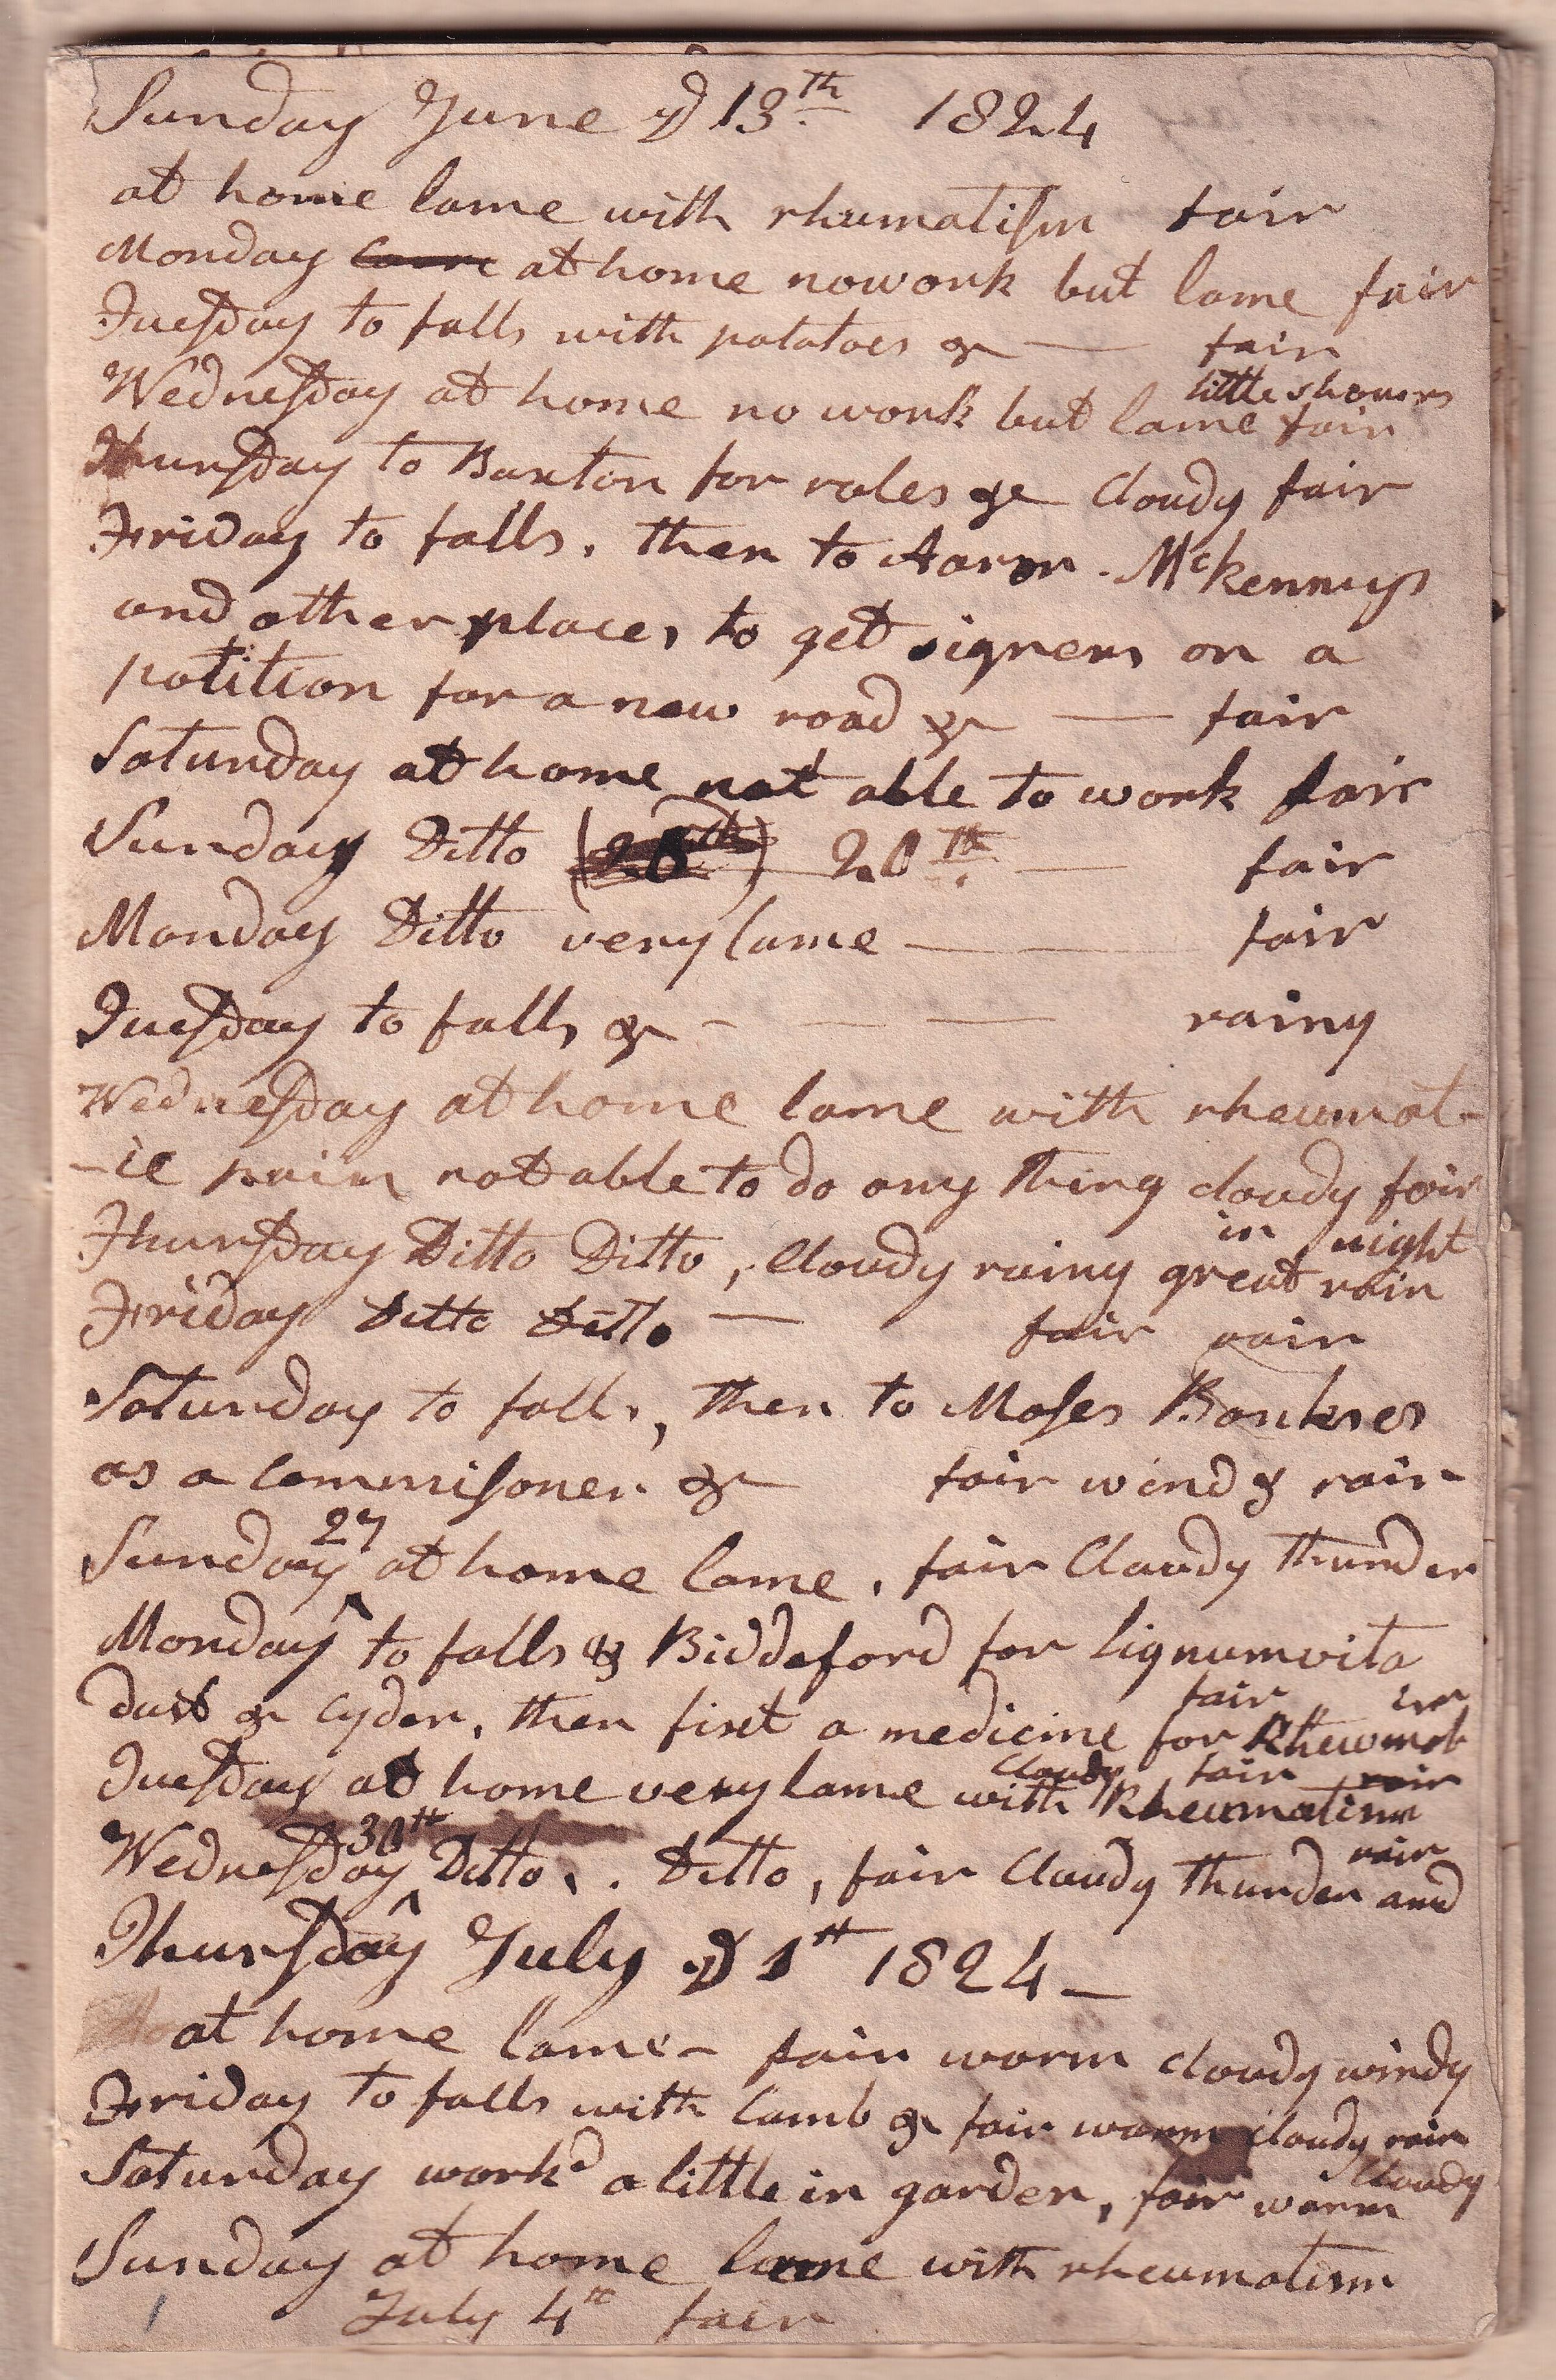 Sunday June ye 13th 1824
at home lame with rhumatism fair
Monday at home nowork but lame fair
Tuesday to falls with potatoes &c — fair
little showers
Wednesday at home no work but lame fair
Thursday to Buxton for rales &c Cloudy fair
Friday to falls, then to Aaron Mckennys
and other places to get signers on a
potition for a new road &c — fair
Saturday at home not able to work fair
Sunday Ditto 20th — fair
Monday Ditto very lame — — fair
Tuesday to falls &c - — — rainy
Wednesday at home lame with rheumat-
-ic pain not able to do any thing cloudy fair
in night
Thursday Ditto Ditto, Cloudy rainy great rain
Friday Ditto Ditto — fair rain
Saturday to falls, then to Moses Bankses
as a commisoner &c fair wind & rain
27
Sunday at home lame, fair Cloudy thunder
Monday to falls & Biddeford for lignumvita
fair
dust & Cyder, then fixt a medicine for Rheumat
Cloudy fair rain
Tuesday at home very lame with Rheumatism
30th rain
Wednesday Ditto, Ditto, fair Cloudy thunder and
Thursday July ye 1st 1824 —
at home lame - fair warm cloudy windy
Friday to falls with lamb &c fair warm cloudy rain
Cloudy
Saturday workd a little in garden, fair warm
Sunday at home lame with rheumatism
July 4th fair